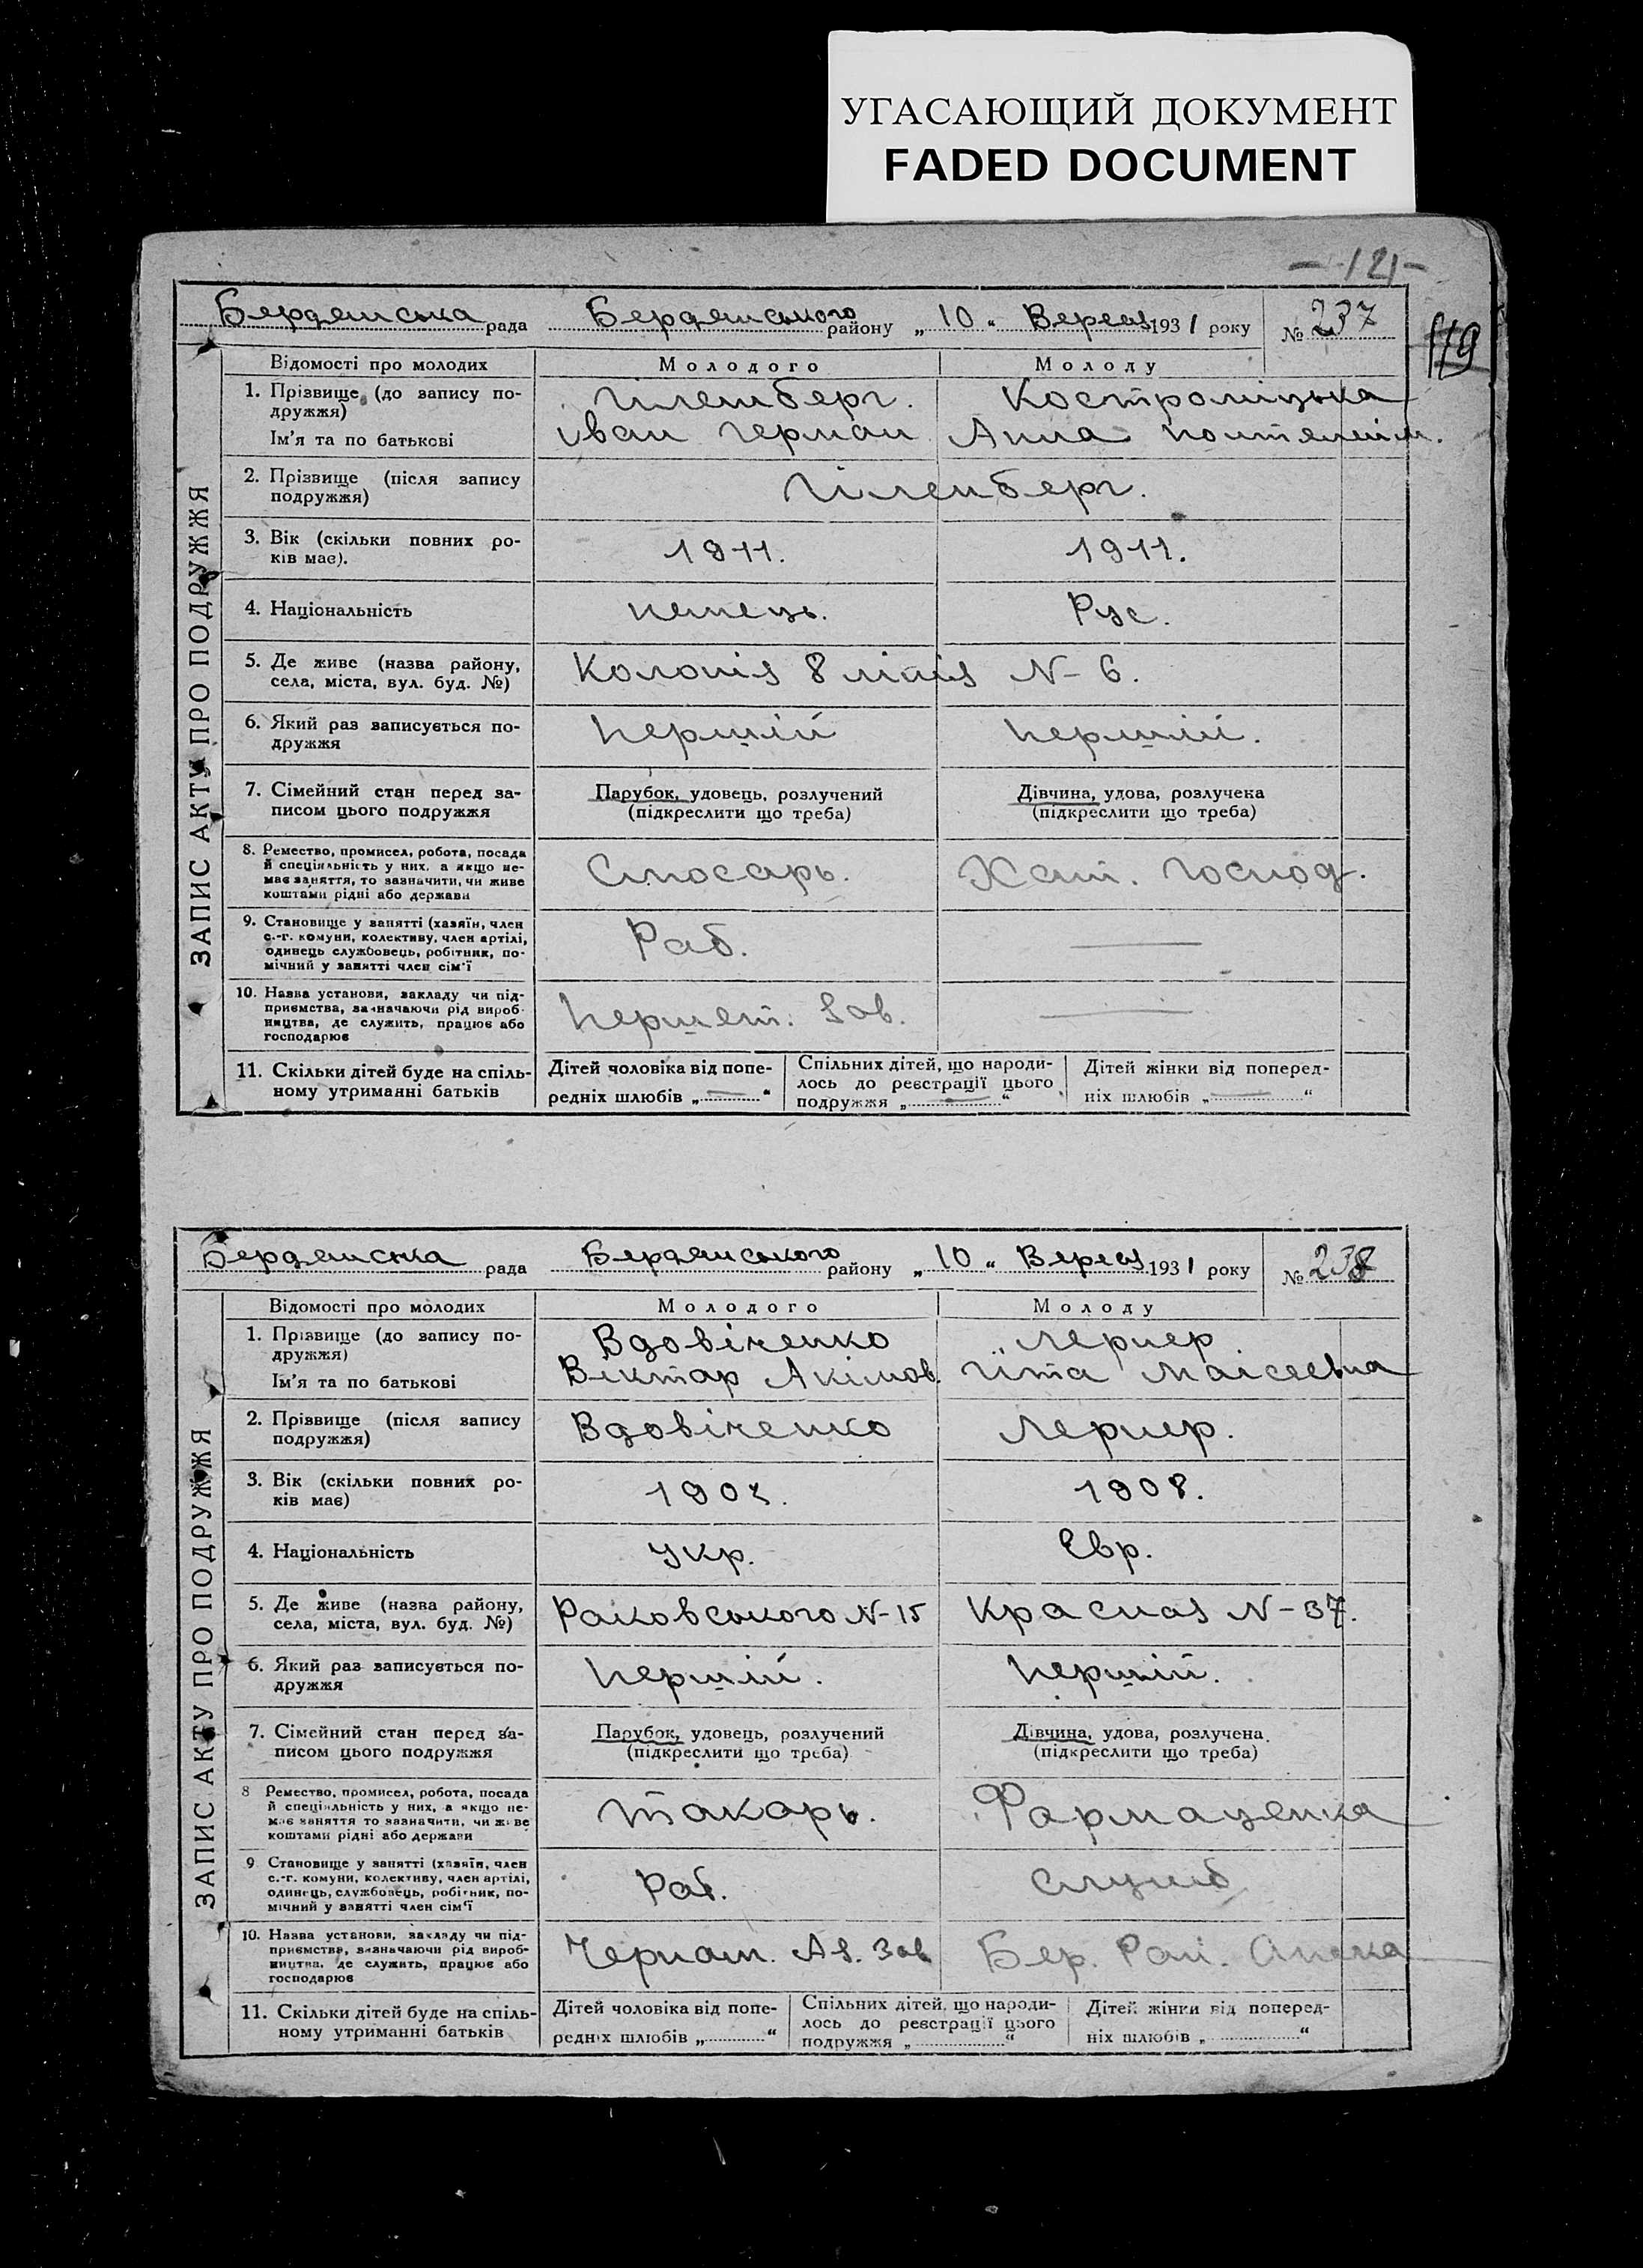 УГАСАЮЩИЙ ДОКУМЕНТ
FADED DOCUMENT
-121-
119
Бердянська рада Бердянського району „ 10 “ Верес 1931 року № 237
ЗАПИС АКТУ ПРО ПОДРУЖЖЯ
Відомості про молодих Молодого Молоду
1. Прізвище (до запису по- Гіленберг. Костроміцька
дружжя)
Ім'я та по батькові Іван Герман Анна
2. Прізвище (після запису Гіленберг.
подружжя)
3. Вік (скільки повних ро- 1911. 1911.
ків має).
4. Національність немець. Рус.
5. Де живе (назва району, Колонія 8 лінія N-6.
села, міста, вул. буд. №)
6. Який раз записується по- першій першій.
дружжя
7. Сімейний стан перед за- Парубок, удовець, розлучений Дівчина, удова, розлучена
писом цього подружжя (підкреслити що треба) (підкреслити що треба)
8. Ремество, промисел, робота, посада Слюсарь. Хат. Господ.
й спеціяльність у них, а якщо не-
має заняття, то зазначити, чи живе
коштами рідні або держави
9. Становище у занятті (хазяїн, член Раб.
с.-г. комуни, колективу, член артілі,
одинець службовець, робітник, по-
мічний у занятті член сім'ї
10. Назва установи, закладу чи під- Першет. Зав.
приємства, зазначаючи рід вироб-
ництва, де служить, працює або
господарює
11. Скільки дітей буде на спіль- Дітей чоловіка від попе- Спільних дітей, що народи- Дітей жінки від поперед-
ному утриманні батьків редніх шлюбів „ — “ лось до реєстрації цього ніх шлюбів „ — “
подружжя „ — “
Бердянська рада Бердянського району „ 10 “ Верес 1931 року № 238
ЗАПИС АКТУ ПРО ПОДРУЖЖЯ
Відомості про молодих Молодого Молоду
1. Прізвище (до запису по- Вдовіченко Лернер
дружжя)
Ім'я та по батькові Віктар Акімов. Іта Маісеевна
2. Прізвище (після запису Вдовіченко Лернер.
подружжя)
3. Вік (скільки повних ро- 1908.
ків має)
4. Національність Укр. Евр.
5. Де живе (назва району, Раковського N-15 Красная N-37.
села, міста, вул. буд. №)
6. Який раз записується по- першій. першій.
дружжя
7. Сімейний стан перед за- Парубок, удовець, розлучений Дівчина, удова, розлучена
писом цього подружжя (підкреслити що треба) (підкреслити що треба)
8 Ремество, промисел, робота, посада Такарь. Фармацевтка
й спеціяльність у них, а якщо не-
має заняття то зазначити, чи живе
коштами рідні або держави
9 Становище у занятті (хазяїн, член Раб. Служб
с.-г. комуни, колективу, член артілі,
одинець, службовець, робітник, по-
мічний у занятті член сім'ї
10. Назва установи, закладу чи під- Аз. Зав Бер. Рай. Аптека
приємства, зазначаючи рід вироб-
ництва, де служить, працює або
господарює
11. Скільки дітей буде на спіль- Дітей чоловіка від попе- Спільних дітей, що народи- Дітей жінки від поперед-
ному утриманні батьків редніх шлюбів „ “ лось до реєстрації цього ніх шлюбів „ “
подружжя „ “